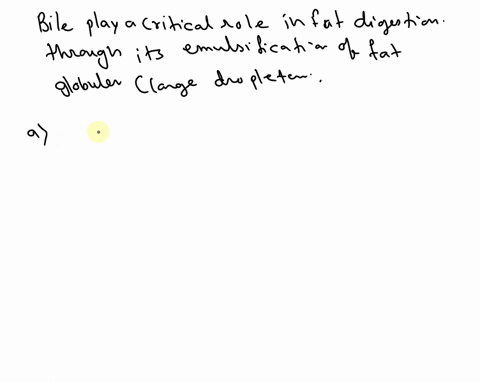 Bile play a critical role in fat digestion.
through its emulsification of fat
globules (large dropleten..
a)